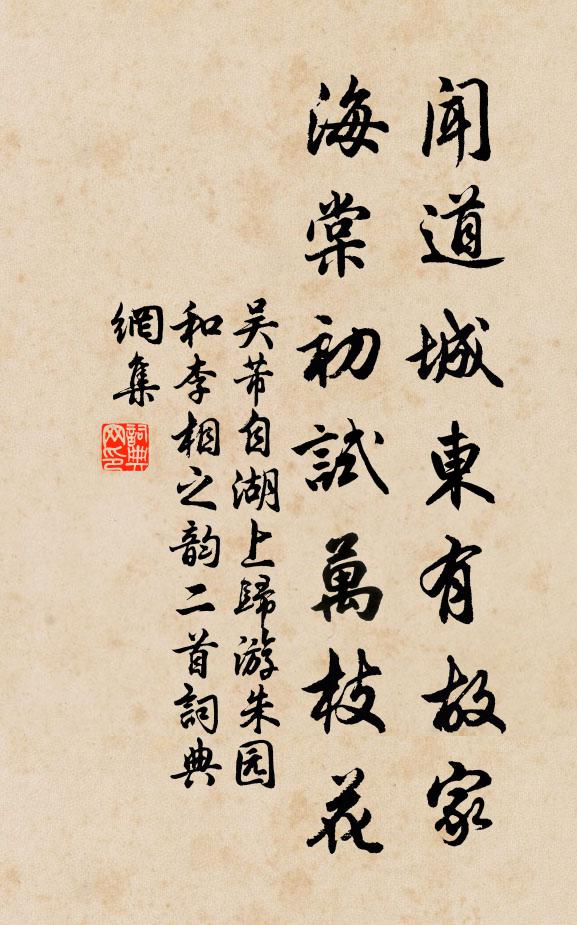 聞道城東有故家
海棠初試萬枝花
吴芾自湖上歸游朱园
和李相之韵二首詞典
網集
詞典
网印